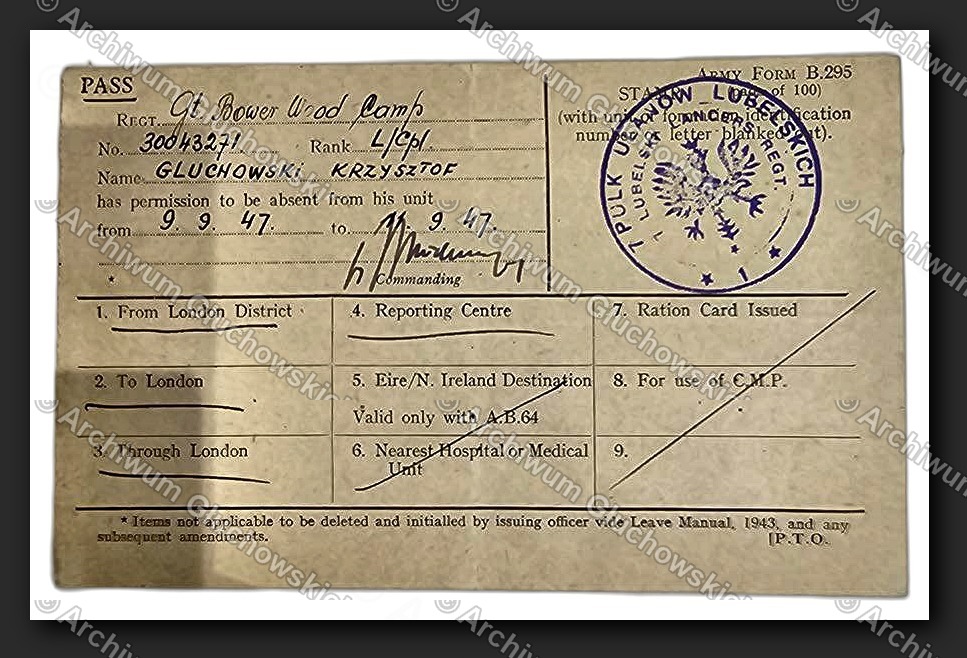 PASS
ARMY FORM B.295
Gt. Bower Wood Camp
REGT.
STAMP of 100)
(with unit or formn. identification
number or letter blanked out).
No. 30043271 Rank L/Cpl
Name GLUCHOWSKI KRZYSZTOF
has permission to be absent from his unit
from 9. 9. 47. to 9. 47.
* Commanding
7 PUŁK UŁANÓW LUBELSKICH
7 LUBELSKI LANCERS REGT.
1
1. From London District
4. Reporting Centre
7. Ration Card Issued
2. To London
5. Eire/N. Ireland Destination
Valid only with A.B.64
8. For use of C.M.P.
3. Through London
6. Nearest Hospital or Medical
Unit
9.
* Items not applicable to be deleted and initialled by issuing officer vide Leave Manual, 1943, and any
subsequent amendments.
[P.T.O.
© Archiwum Głuchowskich